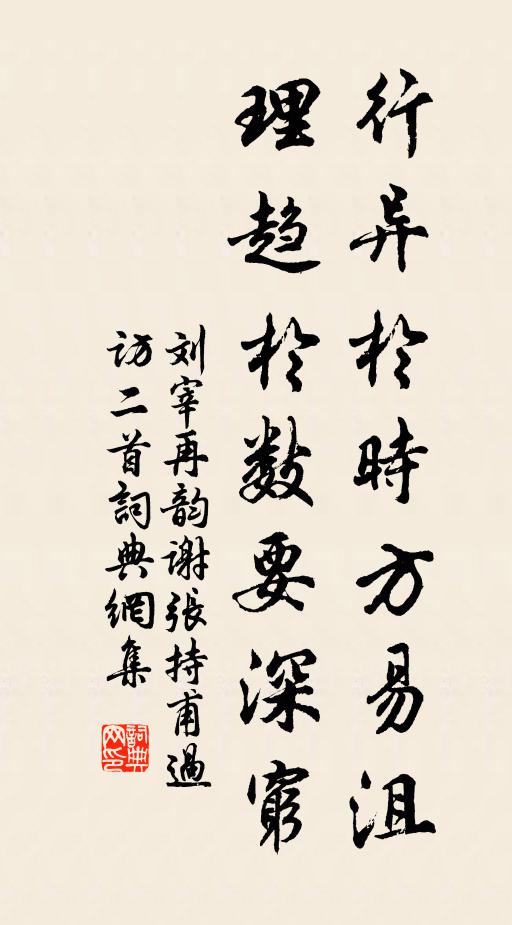 行异於時方易沮
理趋於数要深窮
刘宰再韵谢張持甫過
访二首詞典網集
詞典
网印